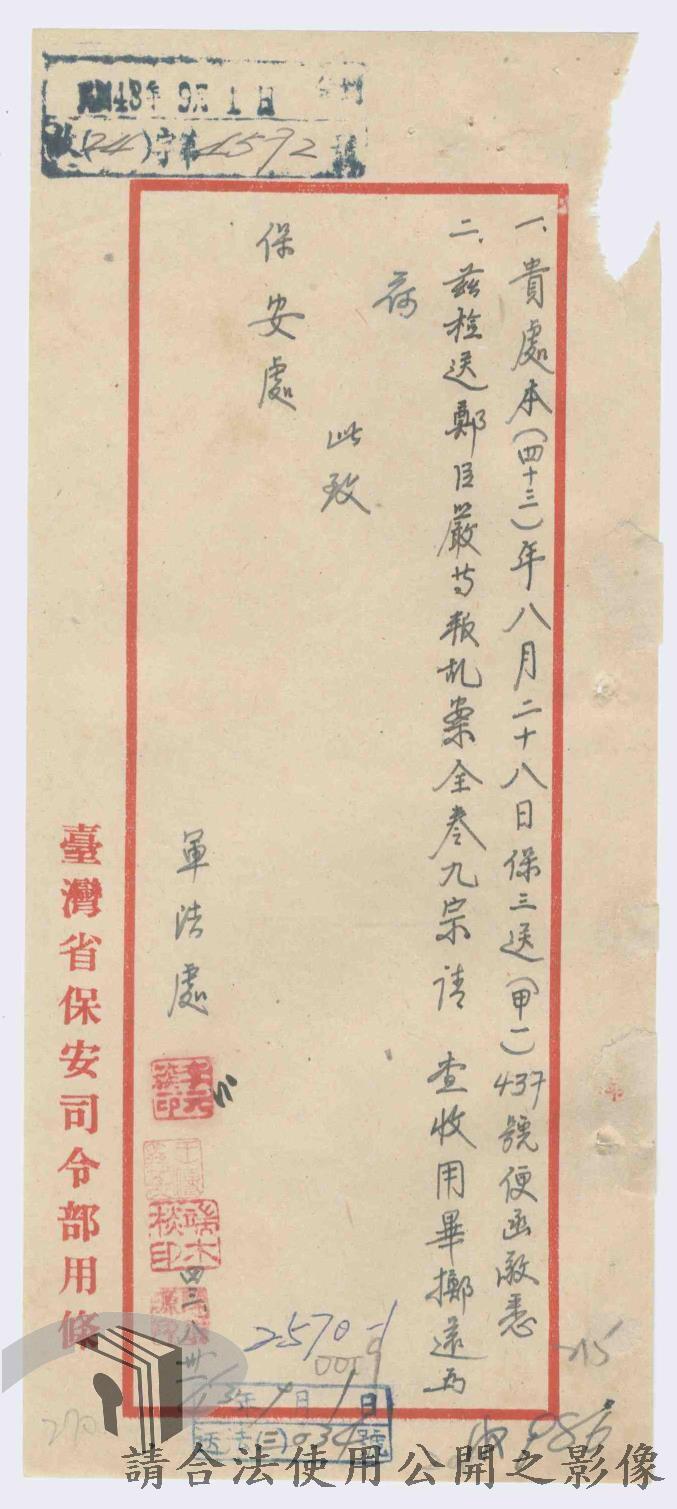 一、貴處本(四十三)年八月二十八日保三送(甲一)437號便函敬悉
二、茲檢送鄭臣嚴等叛乱案全叁九宗請 查收用畢擲還為
荷
此致
保安處
軍法處
四三、八、卅一
臺灣省保安司令部用條
43年9月1日
字第4592號
2570-1
0019
年 月 日
215
請合法使用公開之影像